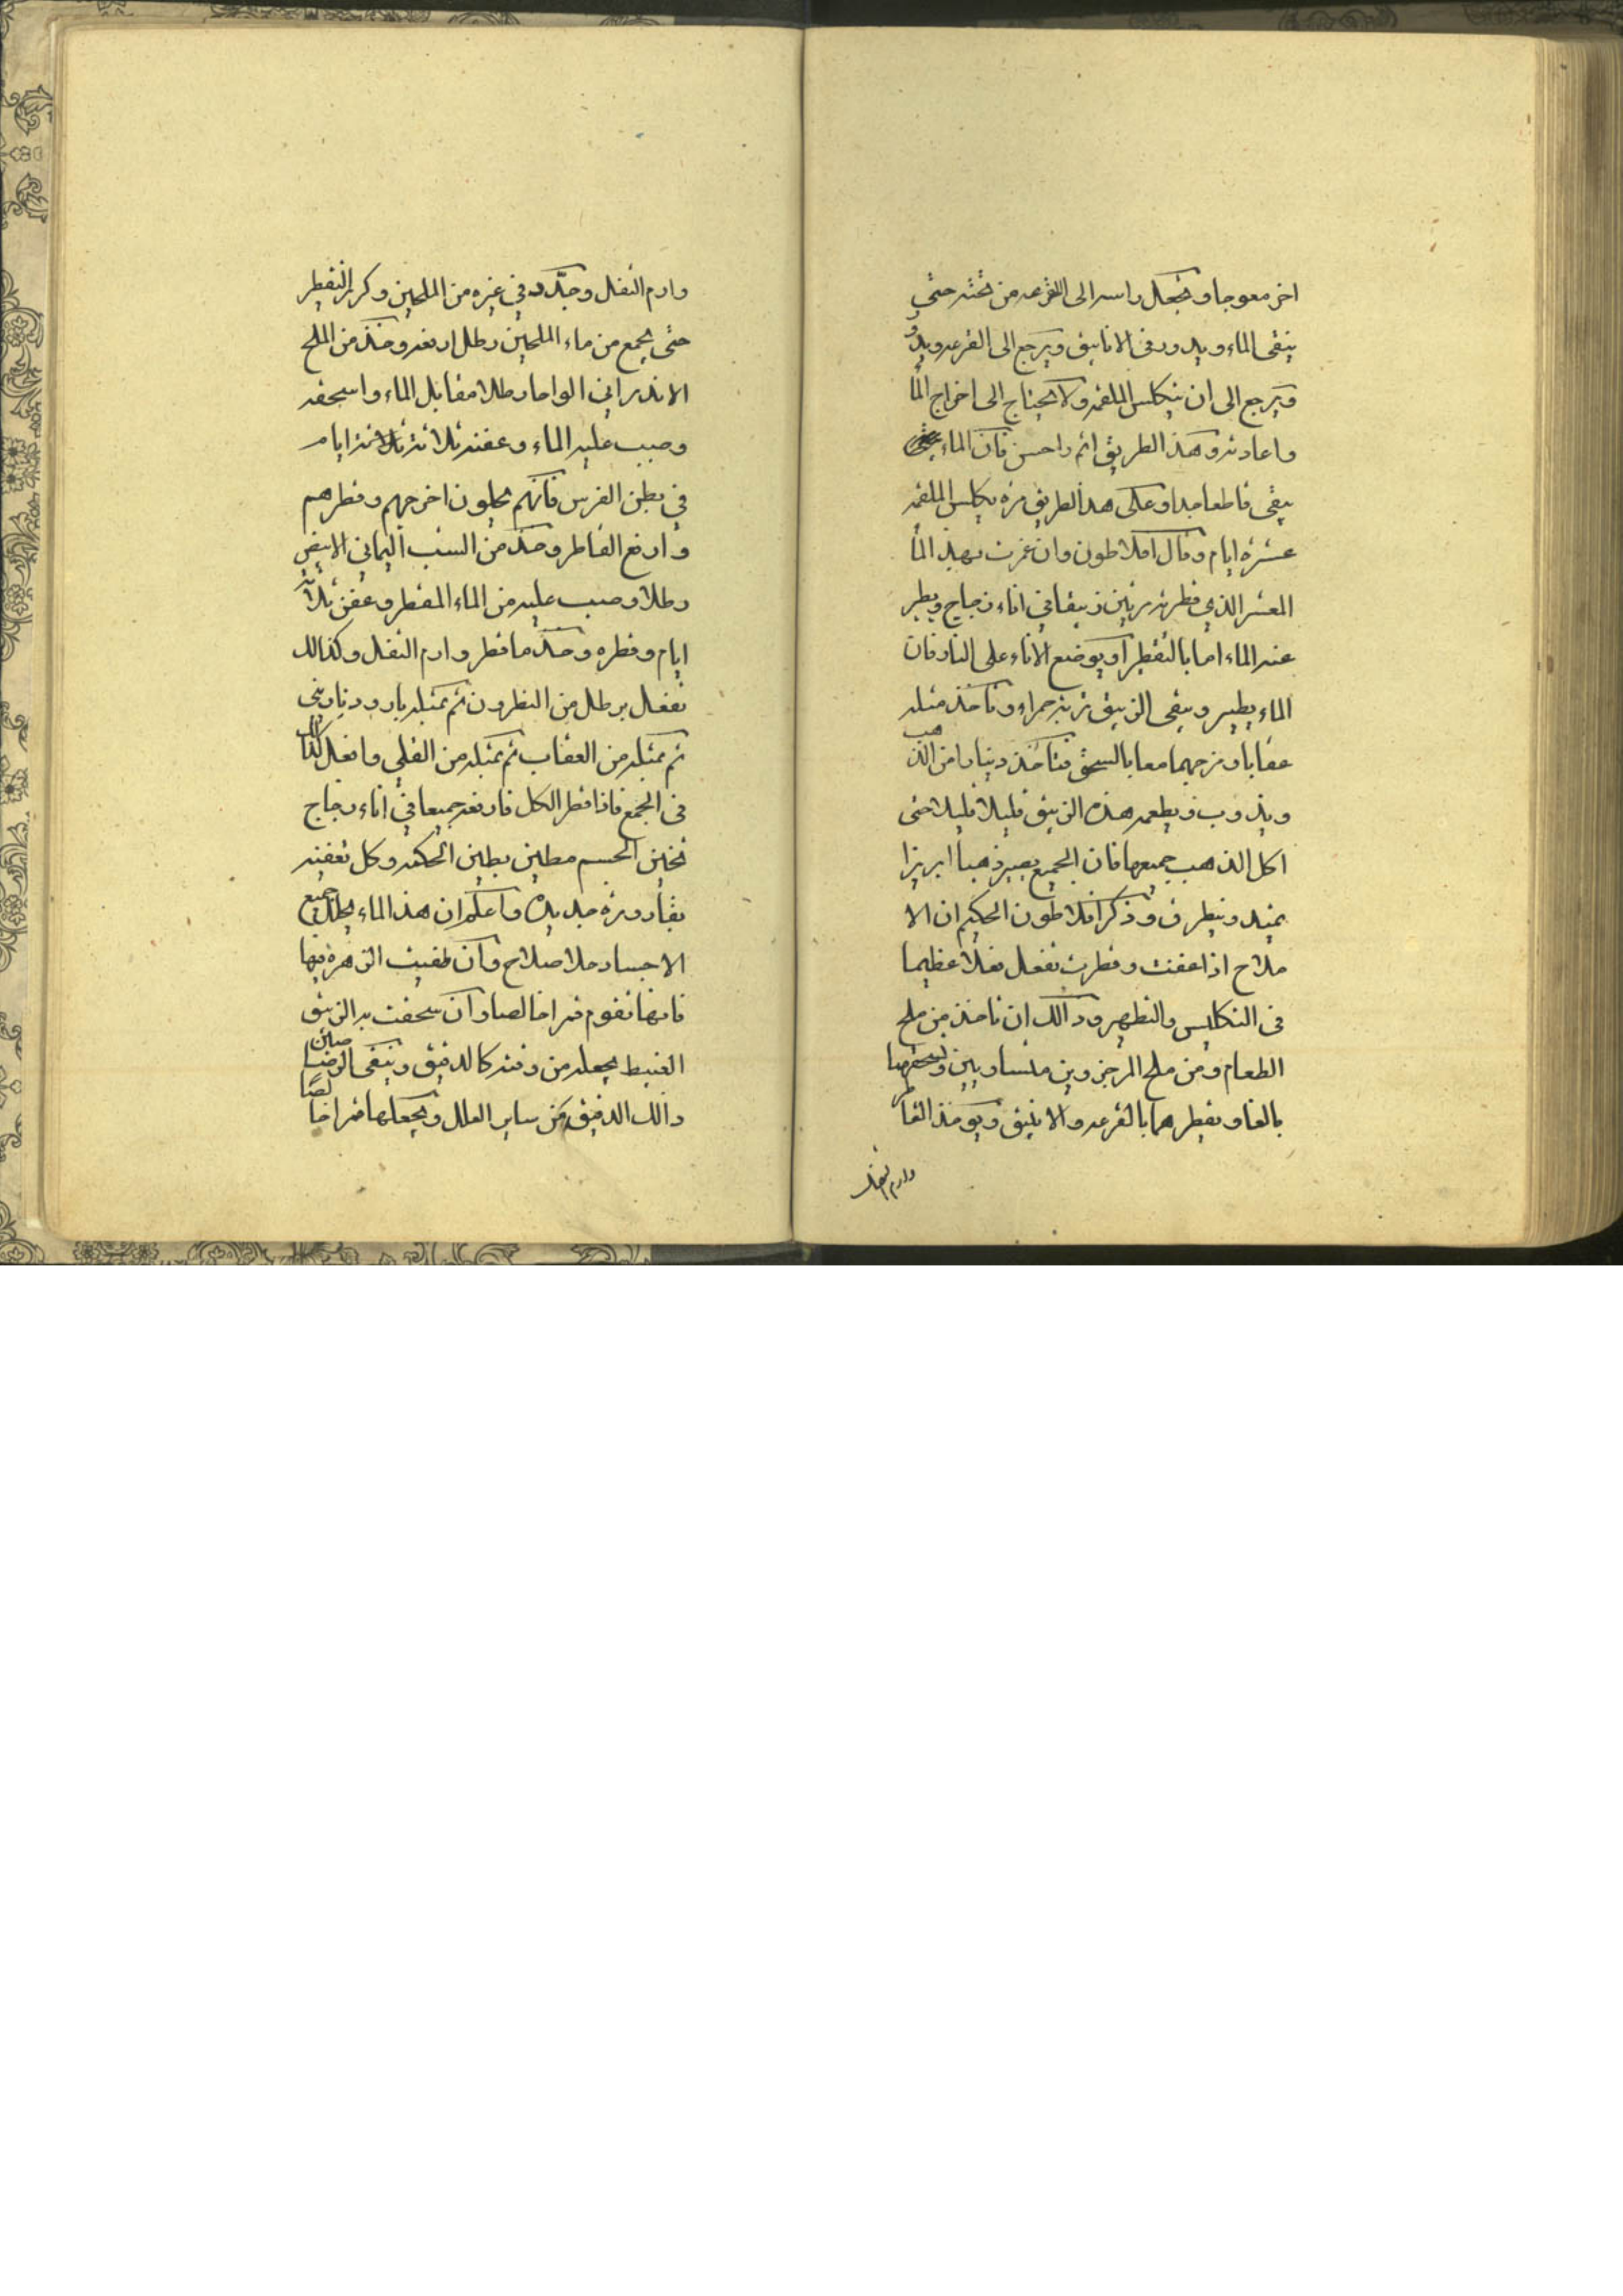 اخر معوجا ويجعل راسه الى القرعه من تحته حتي
يبقى الماء ويدور في الانابيق ويرجع الى القرعه ويدور
ويرجع الى ان يتكلس الملغمه ولا يحتاج الى اخراج الما
واعادته وهذ الطريق اتم واحسن فان الماء
يبقى قاطعا جدا وعلى هذ الطريق مرة يكلس الملغمه
عشرة ايام وقال افلاطون وان غمرت بهذ الما
المعشر الذي قطرته مرتين زيبقا في اناء زجاج ويطير
عنه الماء اما بالتقطير او يوضع الاناء على النار فان
الماء يطير ويبقى الزيبق تربة حمراء وتاخذ مثله
عقابا ومزجهما معا بالسحق فتاخذ دينارا من الذهب
ويذوب ويطعمه هذه الزيبق قليلا قليلا حتى
اكل الذهب جميعها فان الجميع يصير ذهبا ابريزا
يمتد ويتطرق وذكر افلاطون الحكيم ان الا
ملاح اذا عفنت وقطرت تفعل فعلا عظيما
في التكليس والتطهير وذالك ان تاخذ من ملح
الطعام ومن ملح المرجزوين متساويين وتسحقهما
بالغا وتقطرهما بالقرعه والانبيق ويوخذ القاطر
وارم الثفل
وارم الثفل وجدد في غيره من الملحين وكرر التقطير
حتى يجمع من ماء الملحين رطل ارفعه وخذ من الملح
الاندراني الواحا رطلا مقابل الماء واسحقه
وصب عليه الماء وعفنه ثلاثة ثلاثة ايام
في بطن الفرس فانهم يحلون اخرجهم وقطرهم
وارفع القاطر وخذ من الشب اليماني الابيض
رطلا وصب عليه من الماء المقطر وعفن ثلاثة
ايام وقطره وخذ ما قطر وارم الثفل وكذالك
تفعل برطل من النطرون ثم بمثله بارود ناريني
ثم بمثله من العقاب ثم بمثله من القلي وافعل كذالك
في الجمع فاذا قطر الكل فارفعه جميعا في اناء زجاج
ثخين الجسم مطين بطين الحكمه وكل تعفينه
بقارورة جديدة واعلم ان هذ الماء يحلل جميع
الاجساد حلا صلاح وان طفيت الزهرة فيها
فانها تقوم قمرا خالصا وان سحقت به الزيبق
الغبيط يجعله من وقته كالدقيق وينقى الرصاص
ذالك الدقيق من ساير العلل ويجعلها قمرا خالصا